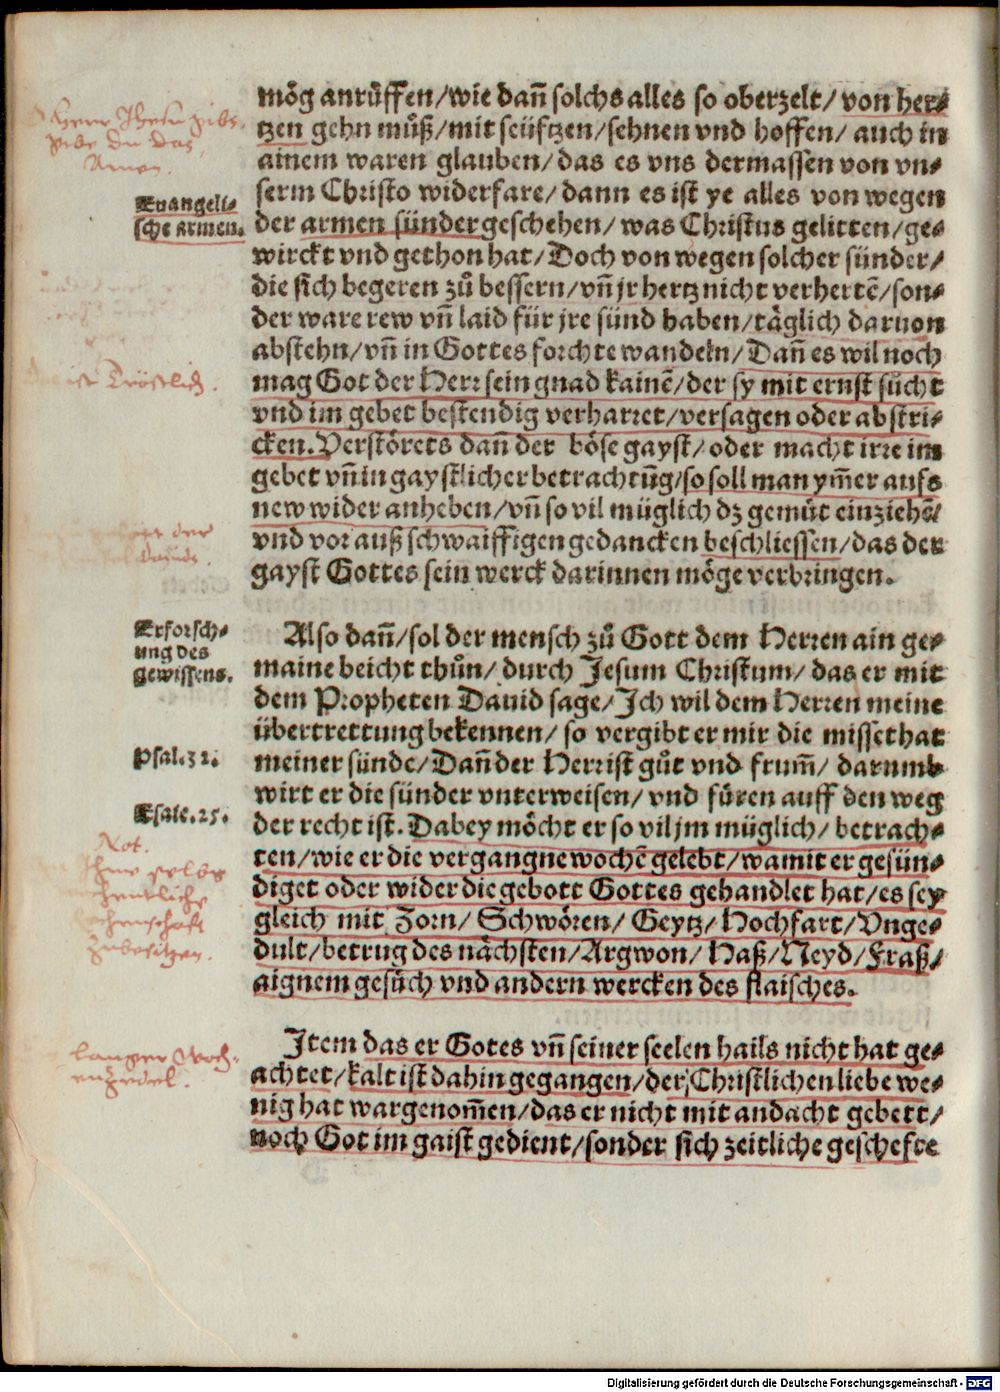 mög anrůffen/wie dañ solchs alles so oberzelt/ von her⸗
tzen gehn můß/mit seüftzen/sehnen vnd hoffen/ auch in
ainem waren glauben/das es vns dermassen von vn⸗
serm Christo widerfare/dann es ist ye alles von wegen
der armen sünder geschehen/ was Christus gelitten/ge⸗
wirckt vnd gethon hat/Doch von wegen solcher sünder/
die sich begeren zů bessern/vñ jr hertz nicht vertertẽ/son⸗
der ware rew vñ laid für jre sünd haben/täglich daruon
abstehn/vñ in Gottes forchte wandeln/Dañ es wil noch
mag Got der Herr sein gnad kainẽ/der sy mit ernst sůcht
vnd im gebet bestendig verharret/versagen oder abstri⸗
cken. Verstörets dañ der böse gayst/oder macht irre im
gebet vñ in gaystlicher betrachtũg/so soll man ym̃er aufs
new wider anheben/vñ so vil müglich dz gemüt einziehẽ/
vnd vor auß schwaiffigen gedancken beschliessen/das der
gayst Gottes sein werck darinnen möge verbringen.
Also dañ/sol der mensch zů Gott dem Herren ain ge⸗
maine beicht thůn/durch Jesum Christum/das er mit
dem Propheten Dauid sage/Ich wil dem Herren meine
übertrettung bekennen/so vergibt er mir die missethat
meiner sünde/Dañ der Herr ist gůt vnd frum̃/darumb
wirt er die sünder vnterweisen/vnd füren auff den weg
der recht ist. Dabey möcht er so vil jm müglich/betrach⸗
ten/wie er die vergangne wochẽ gelebt/wamit er gesün⸗
diget oder wider die gebott Gottes gehandlet hat/es sey
gleich mit Zorn/ Schwören/ Geytz/ Hochfart/ Vnge⸗
dult/betrug des nächsten/Argwon/ Haß/Neyd/Fraß/
aignem gesůch vnd andern wercken des flaisches.
Item das er Gotes vñ seiner seelen hails nicht hat ge⸗
achtet/kalt ist dahin gegangen/der Christlichen liebe we⸗
nig hat wargenom̃en/das er nicht mit andacht gebett/
noch Got im gaist gedient/sonder sich zeitliche geschefte
Herr Jhesu
du das
Amen.
Euangeli⸗
sche armen.
ist Tröstlich.
der
Erforsch⸗
ung des
gewissens.
Psal. 32.
Psal. 25.
Not.
langer Woch⸗
enzedel.
Digitalisierung gefördert durch die Deutsche Forschungsgemeinschaft - DFG